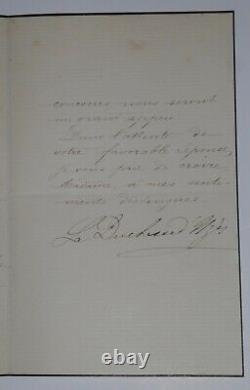 concours nous seront
un grand appui
Dans l'attente de
votre favorable réponse,
je vous prie de croire,
Madame, à mes senti-
ments distingués.
La Duchesse d'Uzès